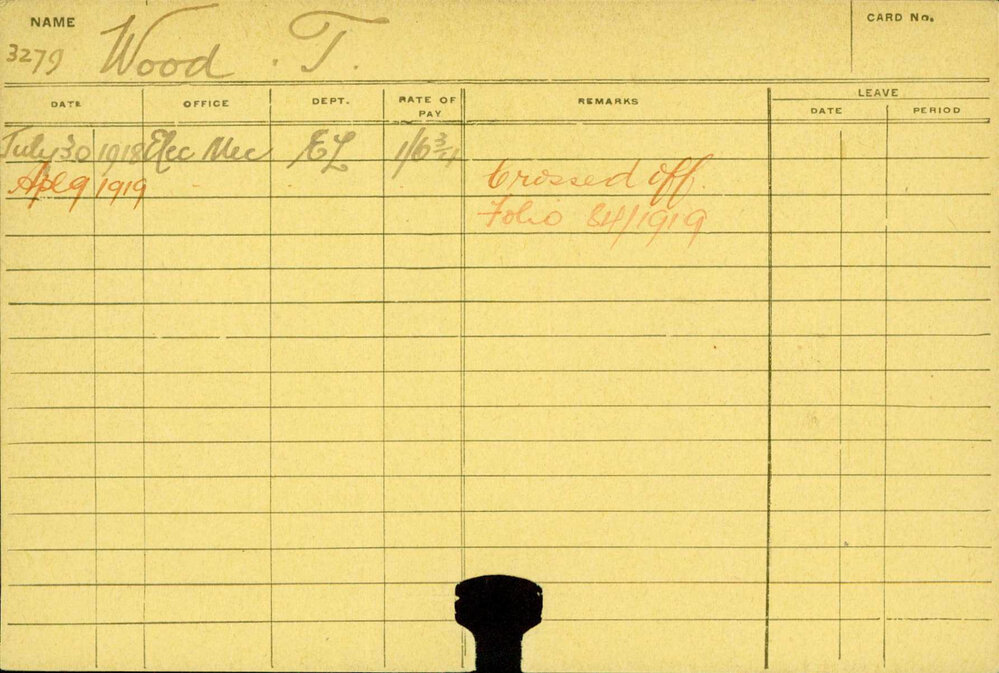 NAME
CARD No.
3279 Wood. T.
LEAVE
DATE OFFICE DEPT. RATE OF PAY REMARKS DATE PERIOD
July 30 1918 Elec Mec EL 1/6
Apl 9 1919 Crossed off.
Folio 84/1919